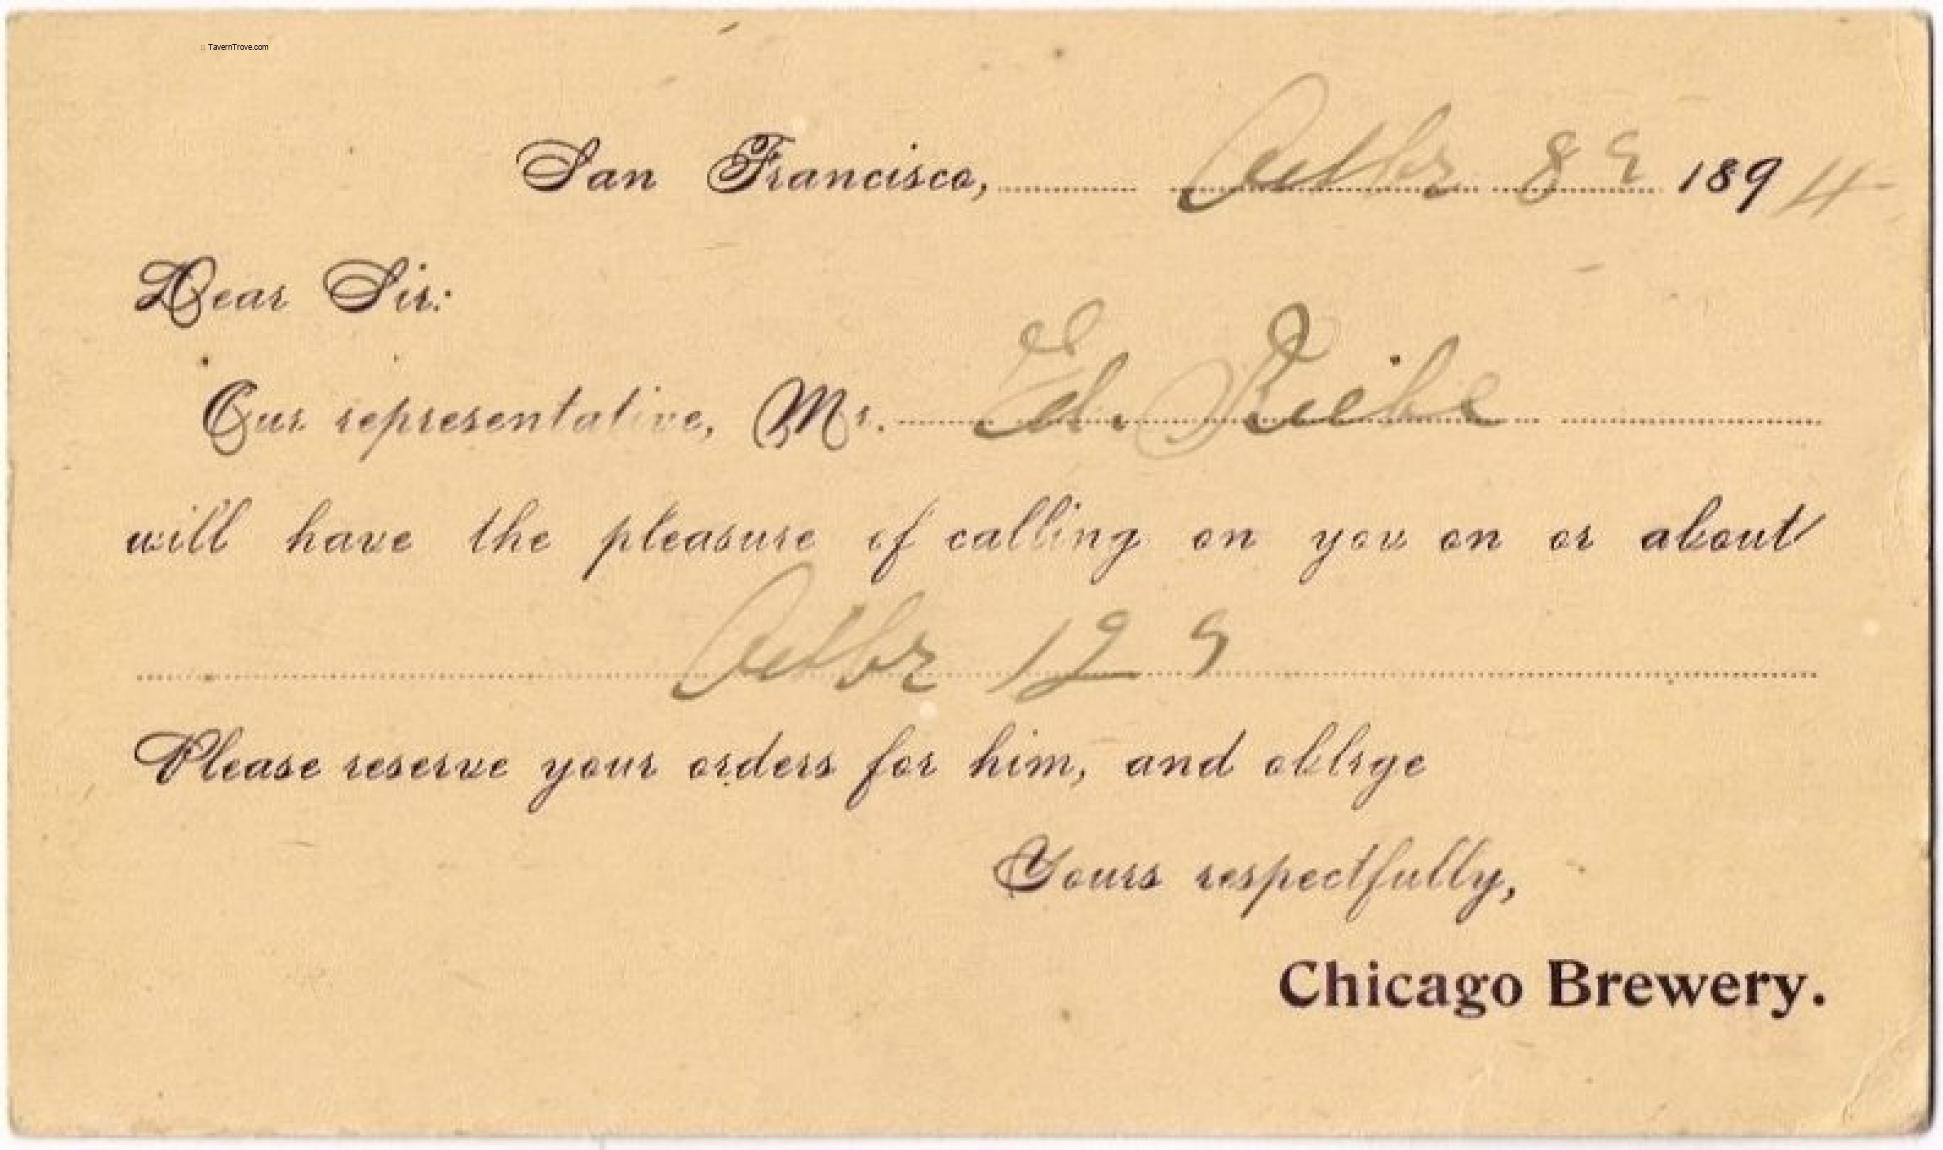 TavernTrove.com
San Francisco, Octbr 8 1894
Dear Sir:
Our representative, Mr. Ed.
will have the pleasure of calling on you on or about
Octbr 12
Please reserve your orders for him, and oblige
Yours respectfully,
Chicago Brewery.